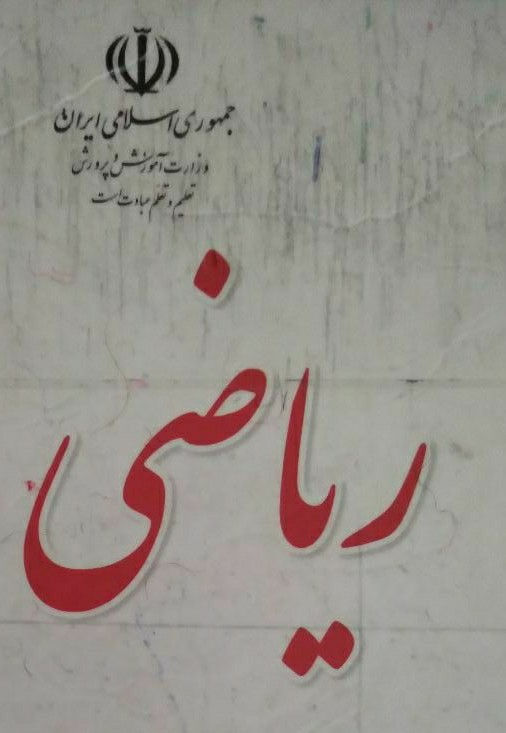 جمهوری اسلامی ایران
وزارت آموزش و پرورش
تعلیم و تعلم عبادت است
ریاضی